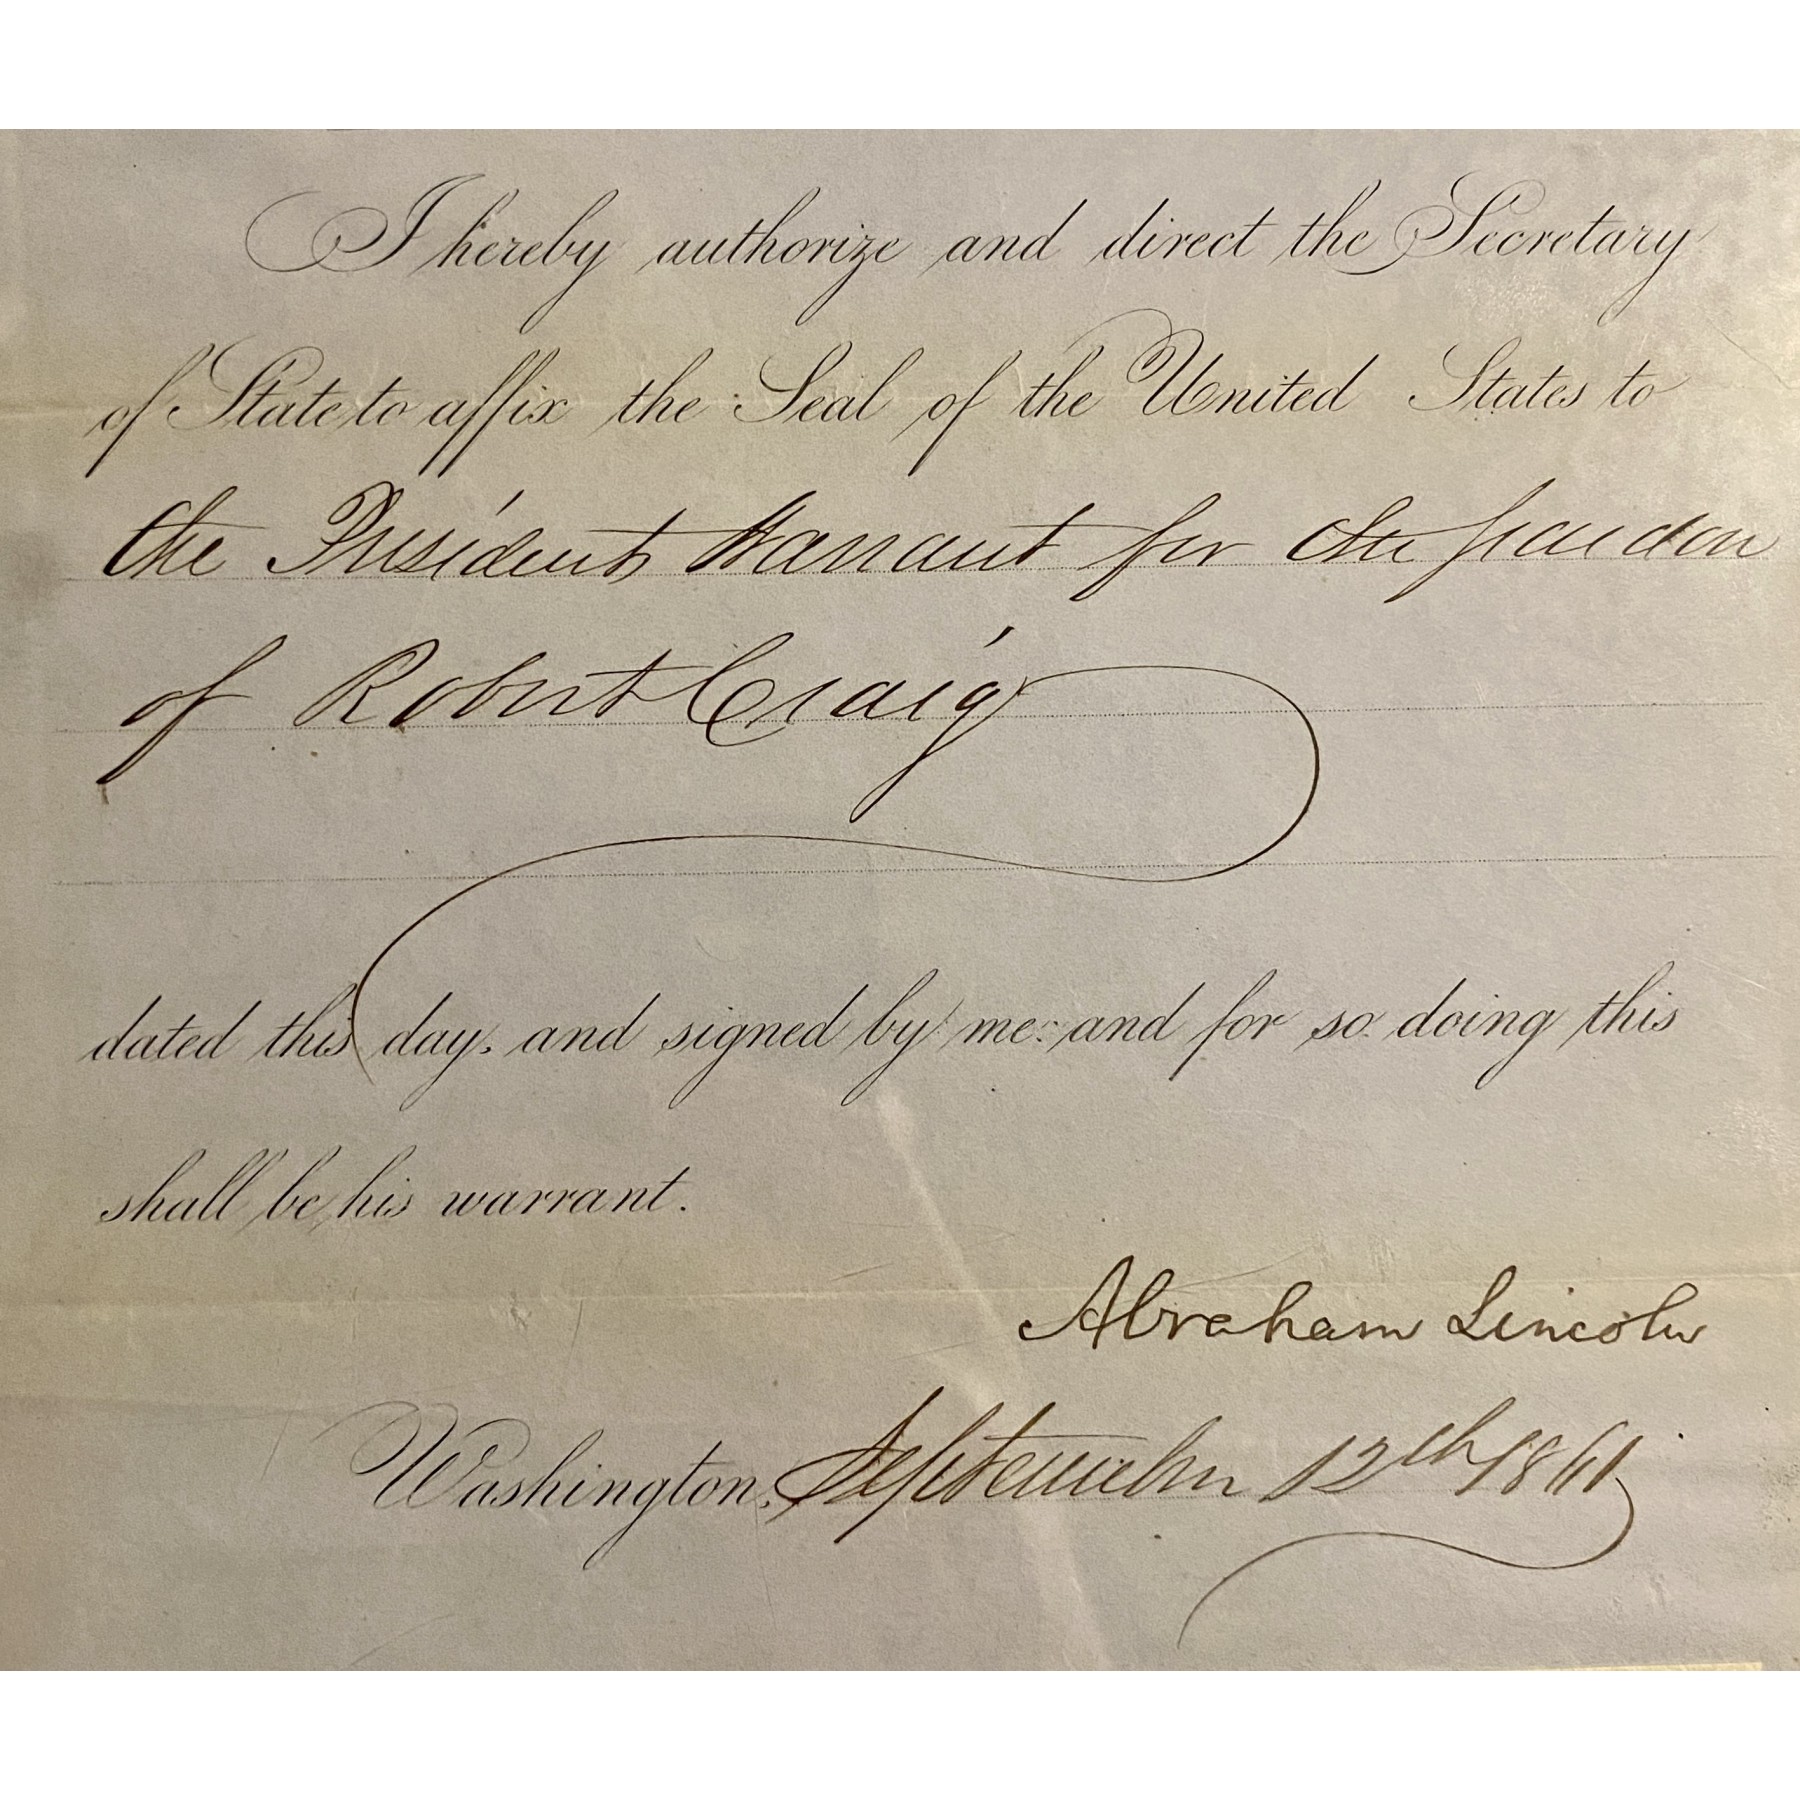 I hereby authorize and direct the Secretary
of State to affix the Seal of the United States to
the President's Warrant for the pardon
of Robert Craig
dated this day, and signed by me: and for so doing this
shall be his warrant.
Abraham Lincoln
Washington, September 12th 1861